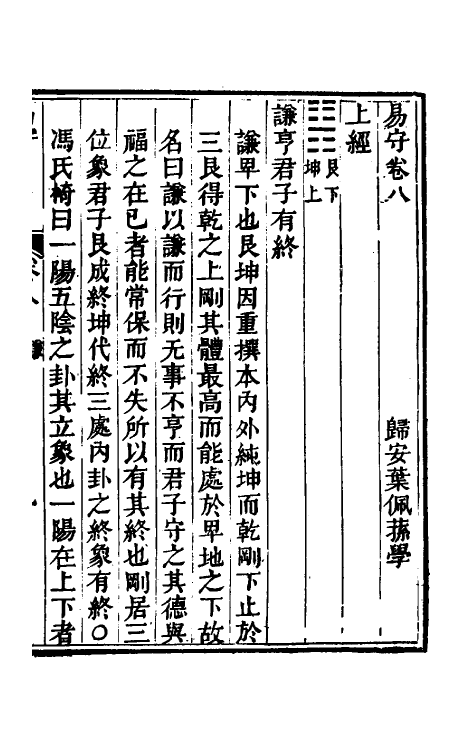 易守卷八
歸安葉佩蓀學
上經
艮下
坤上
謙亨君子有終
謙卑下也艮坤因重撰本內外純坤而乾剛下止於
三艮得乾之上剛其體最高而能處於卑地之下故
名曰謙以謙而行則无事不亨而君子守之其德與
福之在已者能常保而不失所以有其終也剛居三
位象君子艮成終坤代終三處內卦之終象有終○
馮氏椅曰一陽五陰之卦其立象也一陽在上下者
謙